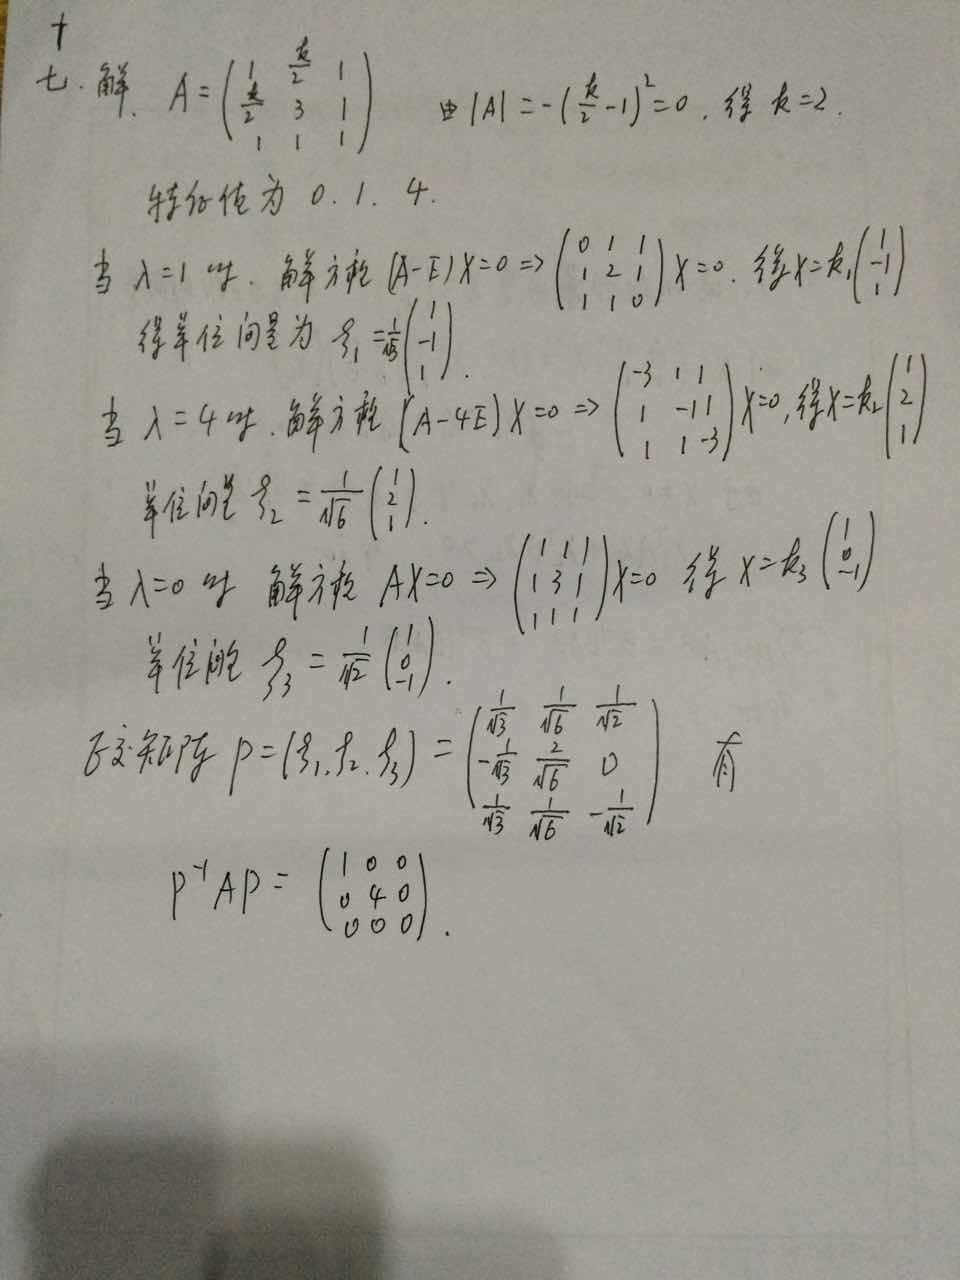 十
七. 解. A = ( 1 k/2 1 ; k/2 3 1 ; 1 1 1 ) 由 |A| = -(k/2 - 1)² = 0, 得 k = 2.
特征值为 0. 1. 4.
当 λ=1 时. 解方程 (A-E)X=0 ⇒ ( 0 1 1 ; 1 2 1 ; 1 1 0 ) X=0. 得 X=k₁ ( 1 ; -1 ; 1 )
得单位向量为 ξ₁ = 1/√3 ( 1 ; -1 ; 1 ).
当 λ=4 时. 解方程 (A-4E)X=0 ⇒ ( -3 1 1 ; 1 -1 1 ; 1 1 -3 ) X=0, 得 X=k₂ ( 1 ; 2 ; 1 )
单位向量 ξ₂ = 1/√6 ( 1 ; 2 ; 1 ).
当 λ=0 时 解方程 AX=0 ⇒ ( 1 1 1 ; 1 3 1 ; 1 1 1 ) X=0 得 X=k₃ ( 1 ; 0 ; -1 )
单位向量 ξ₃ = 1/√2 ( 1 ; 0 ; -1 ).
正交矩阵 P=(ξ₁, ξ₂, ξ₃) = ( 1/√3 1/√6 1/√2 ; -1/√3 2/√6 0 ; 1/√3 1/√6 -1/√2 ) 有
P⁻¹AP = ( 1 0 0 ; 0 4 0 ; 0 0 0 ).